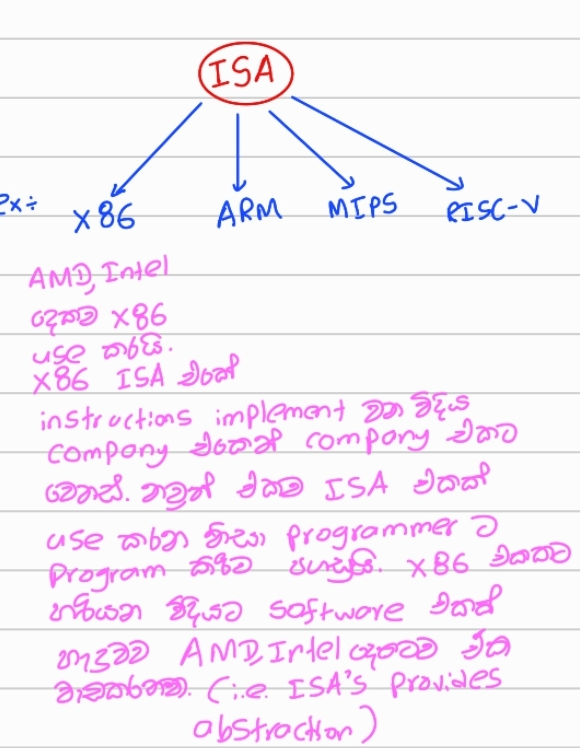 ISA
ex÷ X86 ARM MIPS RISC-V
AMD, Intel
දෙකම X86
use කරයි.
X86 ISA එකේ
instructions implement වන විදිය
company එකෙන් company එකට
වෙනස්. නමුත් එකම ISA එකක්
use කරන නිසා programmer ට
program කිරීම පහසුයි. X86 එකකට
හරියන විදියට software එකක්
හැදුවම AMD, Intel දෙකෙම ඒක
වැඩකරනවා. (i.e. ISA's provides
abstraction)